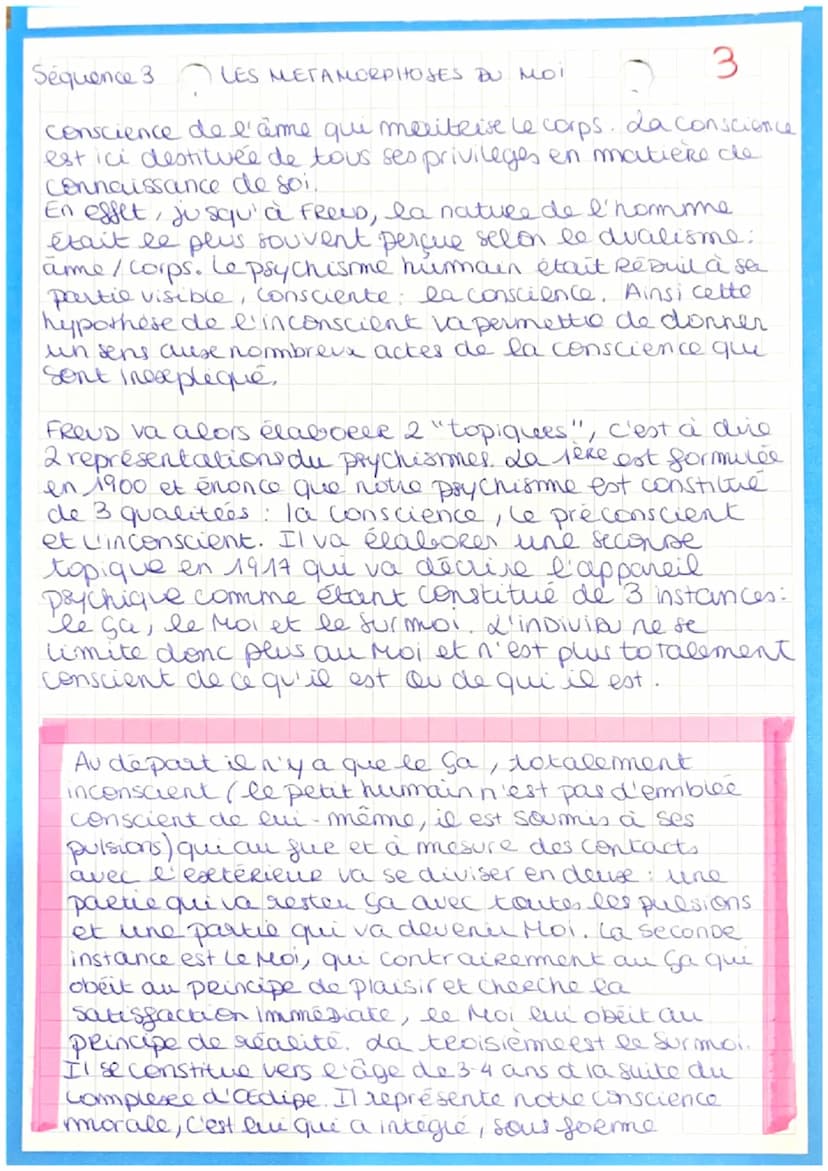 Séquence 3 LES METAMORPHOSES DU MOI 3
conscience de l'âme qui maîtrise le corps. La conscience
est ici destituée de tous ses privilèges en matière de
connaissance de soi.
En effet, jusqu'à FREUD, la nature de l'homme
était le plus souvent perçue selon le dualisme:
âme/corps. Le psychisme humain était RÉDUIT à sa
partie visible, consciente: la conscience. Ainsi cette
hypothèse de l'inconscient va permettre de donner
un sens aux nombreux actes de la conscience qui
sont inexpliqué.
FREUD va alors élaborer 2 "topiques", c'est à dire
2 représentations du psychismes. La 1ère est formulée
en 1900 et énonce que notre psychisme est constitué
de 3 qualitées : la conscience, le préconscient
et l'inconscient. Il va élaborer une seconde
topique en 1917 qui va décrire l'appareil
psychique comme étant constitué de 3 instances:
le ça, le Moi et le surmoi. L'individu ne se
limite donc plus au Moi et n'est plus totalement
conscient de ce qu'il est ou de qui il est.
Au départ il n'y a que le ça, totalement
inconscient (le petit humain n'est pas d'emblée
conscient de lui-même, il est soumis à ses
pulsions) qui au fur et à mesure des contacts
avec l'extérieur va se diviser en deux : une
partie qui va rester ça avec toutes les pulsions
et une partie qui va devenir Moi. La seconde
instance est le Moi, qui contrairement au ça qui
obéit au principe de plaisir et cherche la
satisfaction immédiate, le Moi lui obéit au
principe de réalité. La troisième est le Surmoi.
Il se constitue vers l'âge de 3-4 ans à la suite du
complexe d'Œdipe. Il représente notre conscience
morale, c'est lui qui a intégré, sous forme